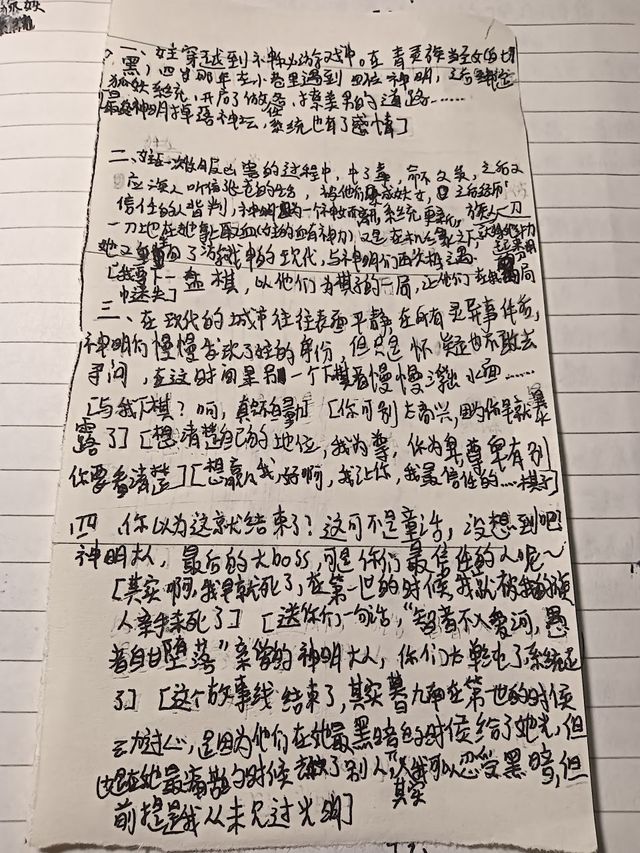 狐妖
一、女主穿越到神明的游戏中。在青灵族当圣女的七
黑,四岁那年在小巷里遇到四位神明,之后绑定
狐妖系统,开启了做任务,揍渣男的道路……
最终神明掉落神坛,系统也有了感情]
二、女主一次做任务的过程中,中了毒,命不久矣,之后又
应族人听信张老的,被他们
信任的人背叛,神明因为一个神女而离开,系统更新,族人一刀
一刀地在她身上取血(女主的血有神力)又是在
她又重启了游戏中的现代,与神明们再次相遇
[我要下一盘棋,以他们为棋子的一局,让他们在我的局
中迷失]
三、在现代的城市往往表面平静在所有灵异事件前,
神明们慢慢发现了女主的身份,但只是怀疑也不敢去
寻问,在这时间里另一个下棋者慢慢浮出水面……
[与我下棋?呵,真不自量] [你可别太高兴,因为你早就暴
露了] [想清楚自己的地位,我为尊,你为卑,尊卑有别
你要看清楚] [想赢我,好啊,我让你,我最信任的……棋子]
四、你以为这就结束了?这可不是童话,没想到吧
神明大人,最后的大boss,可是你们最信任的人呢~
[其实啊,我早就死了,在第一世的时候我就被我的族
人亲手杀死了] [送你们一句话,“智者不入爱河,愚
者自甘堕落”亲爱的神明大人,你们太单纯了,系统
了] [这个故事线结束了,其实暮九在第一世的时候
动过心,是因为他们在她最黑暗的时候给了她光,但
她在她最痛苦的时候救了别人,“我可以忍受黑暗,但
其实
前提是我从未见过光明]